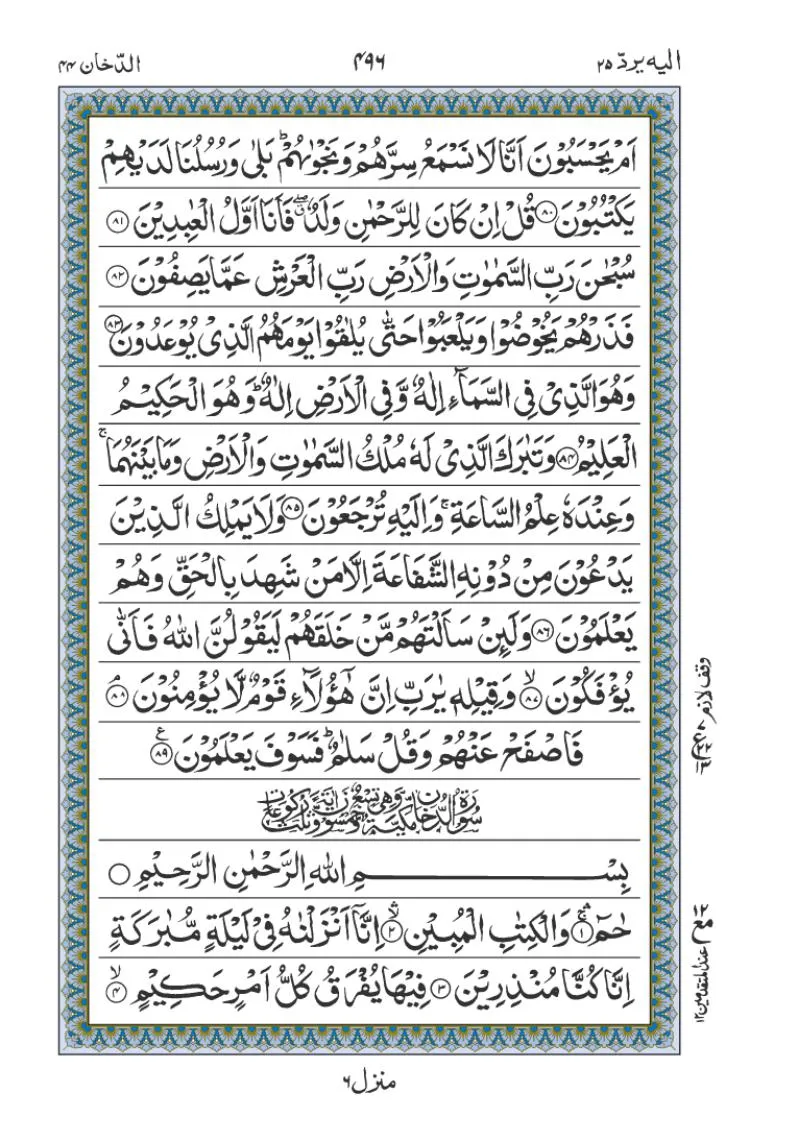 الیه یردّ ۲۵
۴۹۶
الدّخان ۴۴
اَمْ یَحْسَبُوْنَ اَنَّا لَا نَسْمَعُ سِرَّهُمْ وَ نَجْوٰىهُمْ ؕ بَلٰى وَ رُسُلُنَا لَدَیْهِمْ
یَكْتُبُوْنَ ۝۸۰ قُلْ اِنْ كَانَ لِلرَّحْمٰنِ وَلَدٌ ۖۗ فَاَنَا اَوَّلُ الْعٰبِدِیْنَ ۝۸۱
سُبْحٰنَ رَبِّ السَّمٰوٰتِ وَ الْاَرْضِ رَبِّ الْعَرْشِ عَمَّا یَصِفُوْنَ ۝۸۲
فَذَرْهُمْ یَخُوْضُوْا وَ یَلْعَبُوْا حَتّٰى یُلٰقُوْا یَوْمَهُمُ الَّذِیْ یُوْعَدُوْنَ ۝۸۳
وَ هُوَ الَّذِیْ فِی السَّمَآءِ اِلٰهٌ وَّ فِی الْاَرْضِ اِلٰهٌ ؕ وَ هُوَ الْحَكِیْمُ
الْعَلِیْمُ ۝۸۴ وَ تَبٰرَكَ الَّذِیْ لَهٗ مُلْكُ السَّمٰوٰتِ وَ الْاَرْضِ وَ مَا بَیْنَهُمَا ۚ
وَ عِنْدَهٗ عِلْمُ السَّاعَةِ ۚ وَ اِلَیْهِ تُرْجَعُوْنَ ۝۸۵ وَ لَا یَمْلِكُ الَّذِیْنَ
یَدْعُوْنَ مِنْ دُوْنِهِ الشَّفَاعَةَ اِلَّا مَنْ شَهِدَ بِالْحَقِّ وَ هُمْ
یَعْلَمُوْنَ ۝۸۶ وَ لَىِٕنْ سَاَلْتَهُمْ مَّنْ خَلَقَهُمْ لَیَقُوْلُنَّ اللّٰهُ فَاَنّٰى
یُؤْفَكُوْنَ ۝۸۷ۙ وَ قِیْلِهٖ یٰرَبِّ اِنَّ هٰۤؤُلَآءِ قَوْمٌ لَّا یُؤْمِنُوْنَ ۝۸۸ۘ
فَاصْفَحْ عَنْهُمْ وَ قُلْ سَلٰمٌ ؕ فَسَوْفَ یَعْلَمُوْنَ ۝۸۹ع
سُوْرَةُ الدُّخَانِ مَكِّیَّةٌ وَّهِیَ تِسْعٌ وَّخَمْسُوْنَ اٰیَةً وَّثَلٰثُ رُكُوْعَاتٍ
بِسْمِ اللّٰهِ الرَّحْمٰنِ الرَّحِیْمِ ۝
حٰمٓ ۝۱ۚۛ وَ الْكِتٰبِ الْمُبِیْنِ ۝۲ۙۛ اِنَّاۤ اَنْزَلْنٰهُ فِیْ لَیْلَةٍ مُّبٰرَكَةٍ
اِنَّا كُنَّا مُنْذِرِیْنَ ۝۳ فِیْهَا یُفْرَقُ كُلُّ اَمْرٍ حَكِیْمٍ ۝۴ۙ
وقف لازم
عند المتقدمین ۱۲
منزل ۶